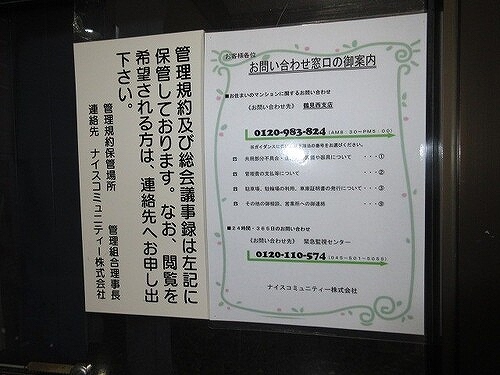 管理規約及び総会議事録は左記に
保管しております。なお、閲覧を
希望される方は、連絡先へお申し出
下さい。
管理規約保管場所 管理組合理事長
連絡先 ナイスコミュニティー株式会社
お客様各位
お問い合わせ窓口の御案内
■お住まいのマンションに関するお問い合わせ
《お問い合わせ先》 鶴見西支店
0120-983-824 (AM8:30~PM5:00)
※ガイダンスに従い、該当の番号をお選びください。
共用部分不具合・器具について ・・・①
管理費の支払等について ・・・②
駐車場、駐輪場の利用、車庫証明書の発行について ・・・③
その他の御相談、営業所への御連絡 ・・・④
■24時間・365日のお問い合わせ
《お問い合わせ先》 緊急監視センター
0120-110-574 (045-501-5055)
ナイスコミュニティー株式会社